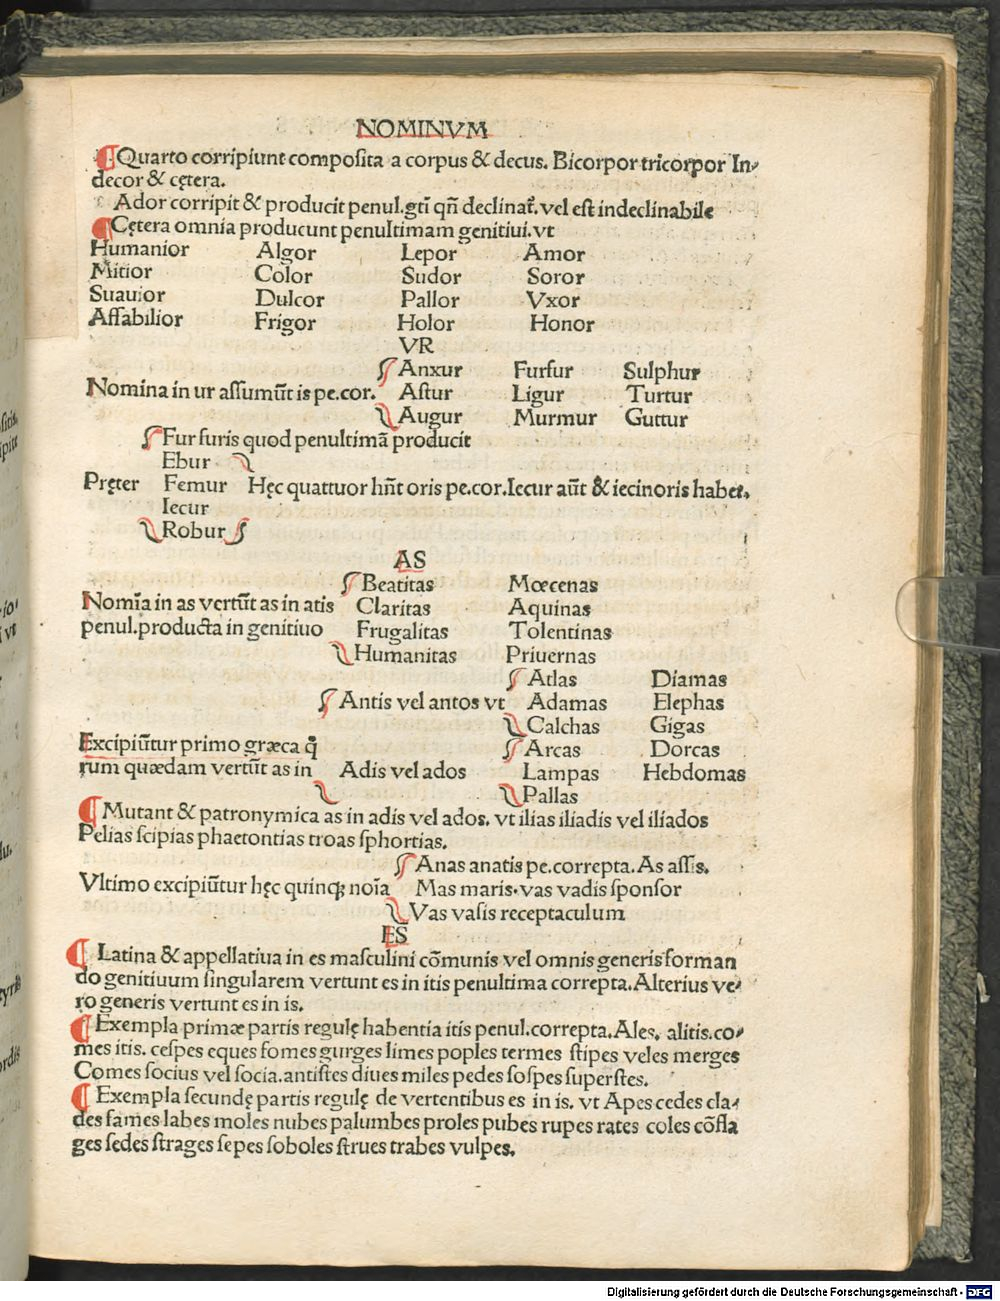 NOMINVM
¶Quarto corripiunt composita a corpus & decus. Bicorpor tricorpor In-
decor & cętera.
Ador corripit & producit penul.gti qñ declinat. vel est indeclinabile
¶Cętera omnia producunt penultimam genitiui.vt
Humanior Algor Lepor Amor
Mitior Color Sudor Soror
Suauior Dulcor Pallor Vxor
Affabilior Frigor Holor Honor
VR
Anxur Furfur Sulphur
Nomina in ur assumũt is pe.cor. Astur Ligur Turtur
Augur Murmur Guttur
Fur furis quod penultimã producit
Ebur
Pręter Femur Hęc quattuor hñt oris pe.cor.Iecur aũt & iecinoris habet.
Iecur
Robur
AS
Beatitas Mœcenas
Nomĩa in as vertũt as in atis Claritas Aquinas
penul.producta in genitiuo Frugalitas Tolentinas
Humanitas Priuernas
Atlas Diamas
Antis vel antos vt Adamas Elephas
Calchas Gigas
Excipiũtur primo græca q̃ Arcas Dorcas
rum quædam vertũt as in Adis vel ados Lampas Hebdomas
Pallas
¶Mutant & patronymica as in adis vel ados. vt ilias iliadis vel iliados
Pelias scipias phaetontias troas sphortias.
Anas anatis pe.correpta.As assis.
Vltimo excipiũtur hęc quinq; noĩa Mas maris.vas vadis sponsor
Vas vasis receptaculum
ES
¶Latina & appellatiua in es masculini cõmunis vel omnis generis forman
do genitiuum singularem vertunt es in itis penultima correpta.Alterius ve-
ro generis vertunt es in is.
¶Exempla primæ partis regulę habentia itis penul.correpta.Ales. alitis.co-
mes itis. cespes eques fomes gurges limes poples termes stipes veles merges
Comes socius vel socia.antistes diues miles pedes sospes superstes.
¶Exempla secundę partis regulę de vertentibus es in is. vt Apes cedes cla-
des fames labes moles nubes palumbes proles pubes rupes rates coles cõfla
ges sedes strages sepes soboles strues trabes vulpes.
Digitalisierung gefördert durch die Deutsche Forschungsgemeinschaft - DFG